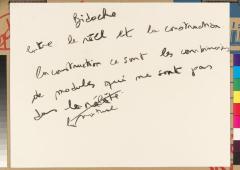 Bidoche
entre le réel et la construction
la construction ce sont les combinaisons
de modules qui ne sont pas
dans la